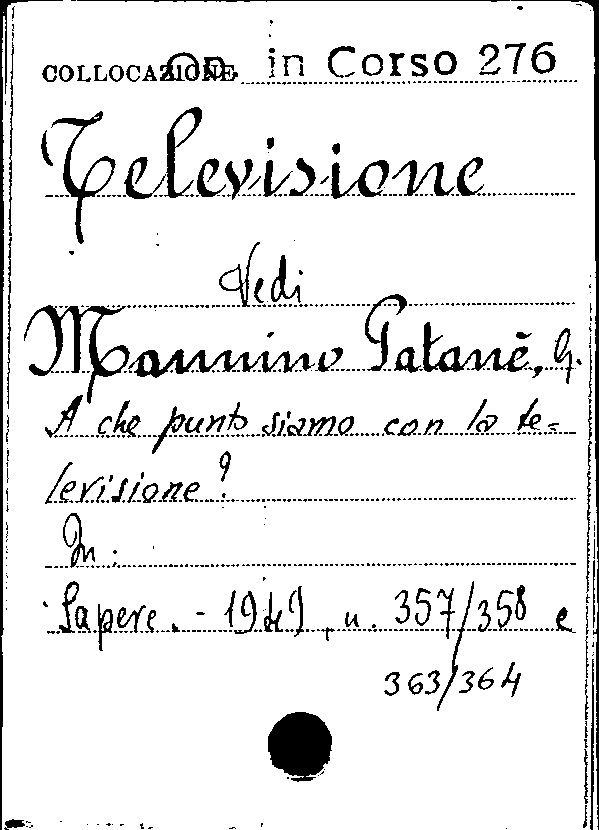 COLLOCAZIONE OP. in Corso 276
Televisione
Vedi
Mannino Patanè, G.
A che punto siamo con la te=
levisione?
In:
Sapere. - 1949, n. 357/358 e
363/364